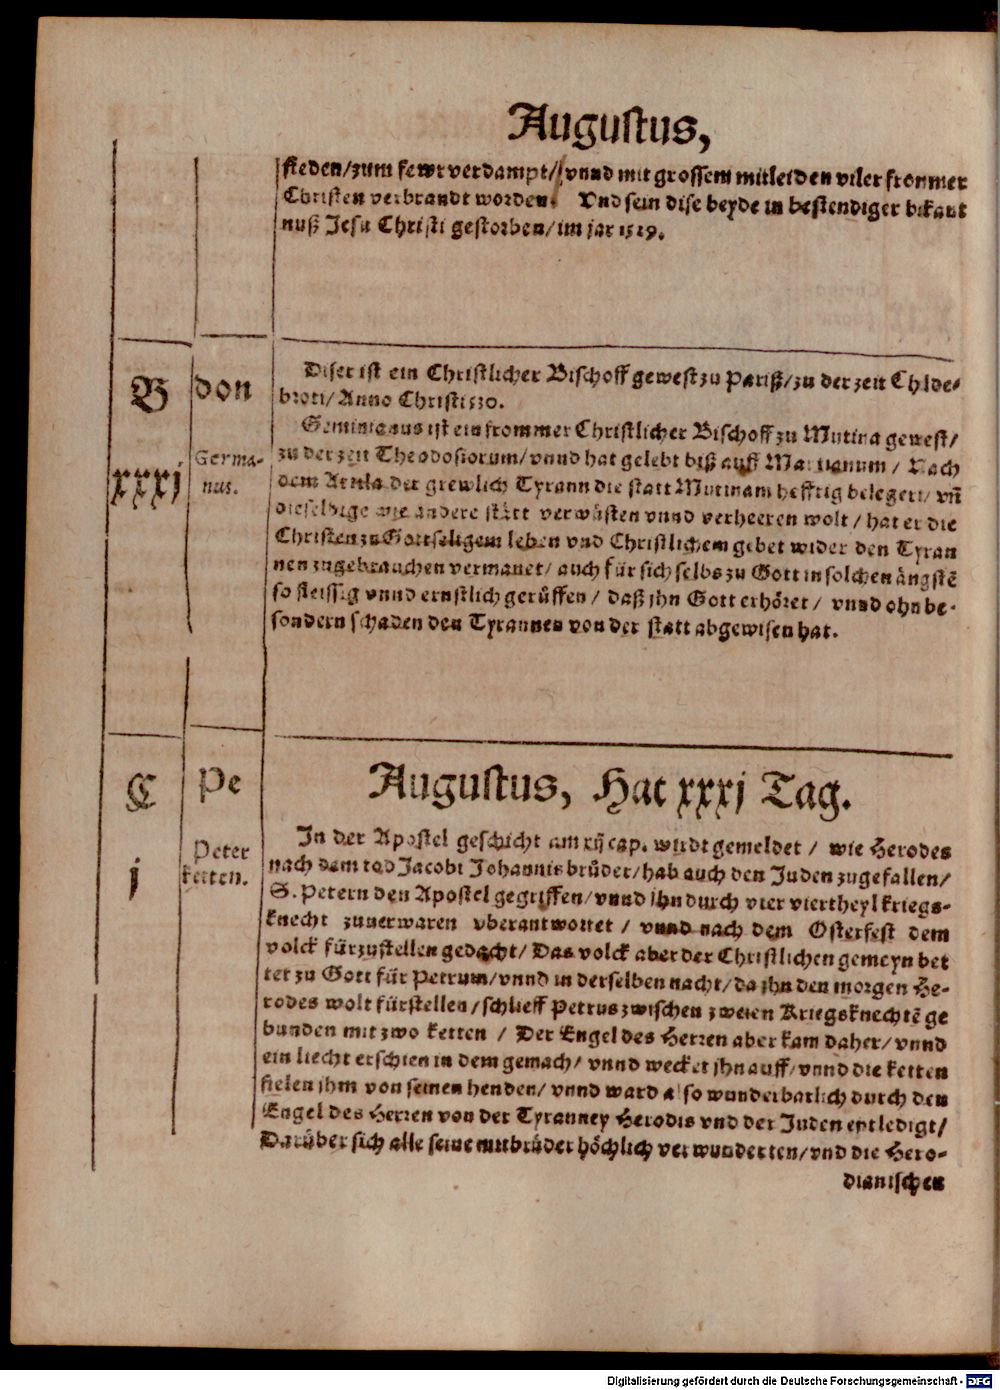 Augustus,
steden/zum fewr verdampt/ vnnd mit grossem mitleiden viler frommer
Christen verbrandt worden. Vnd sein dise beyde in bestendiger bekant
nuß Jesu Christi gestorben/im jar 1529.
B don
xxxj
Germa-
nus.
Diser ist ein Christlicher Bischoff gewest zu Pariß/zu der zeit Childe-
broti/Anno Christi 530.
Geminianus ist ein frommer Christlicher Bischoff zu Mutina gewest/
zu der zeit Theodosiorum/vnnd hat gelebt biß auff Martianum/ Nach
dem Attila der grewlich Tyrann die statt Mutinam hefftig belegert/ vñ
dieselbige wie andere stätt verwüsten vnnd verheeren wolt/ hat er die
Christen zu Gottseligem leben vnd Christlichem gebet wider den Tyran
nen zugebrauchen vermanet/ auch für sich selbs zu Gott in solchen ängstē
so fleissig vnnd ernstlich gerüffen/ daß jhn Gott erhöret/ vnnd ohn be-
sondern schaden den Tyrannen von der statt abgewisen hat.
Augustus, Hat xxxj Tag.
C Pe
j
Peter
ketten.
In der Apostel geschicht am xij cap. wirdt gemeldet/ wie Herodes
nach dem tod Jacobi Johannis brüder/hab auch den Juden zugefallen/
S. Petern den Apostel gegriffen/vnnd jhn durch vier viertheyl kriegs-
knecht zuuerwaren vberantwortet/ vnnd nach dem Osterfest dem
volck fürzustellen gedacht/ Das volck aber der Christlichen gemeyn bet
tet zu Gott für Petrum/vnnd in derselben nacht/da jhn den morgen He-
rodes wolt fürstellen/schlieff Petrus zwischen zweien Kriegsknechtē ge
bunden mit zwo ketten/ Der Engel des Herren aber kam daher/vnnd
ein liecht erschien in dem gemach/ vnnd wecket jhn auff/vnnd die ketten
fielen jhm von seinen henden/ vnnd ward also wunderbarlich durch den
Engel des Herren von der Tyranney Herodis vnd der Juden entledigt/
Darüber sich alle seine mitbrüder höchlich verwunderten/vnd die Hero-
dianischen
Digitalisierung gefördert durch die Deutsche Forschungsgemeinschaft - DFG